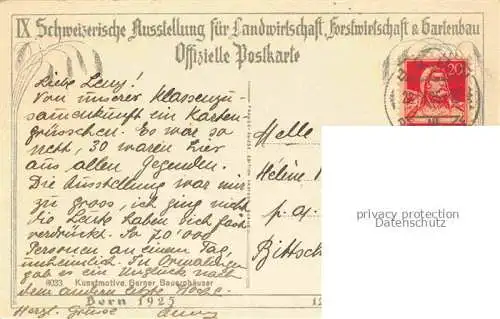 IX Schweizerische Ausstellung für Landwirtschaft, Forstwirtschaft & Gartenbau
Offizielle Postkarte
Liebe Leny!
Von unserer Klassenzu-
sammenkunft ein Karten
grüsschen. Es war so
nett, 30 waren hier
aus allen Gegenden.
Die Ausstellung war mir
zu gross, ich ging nicht
die Leute haben sich fast
verdrückt. So 70'000
Personen an einem Tag,
unheimlich. In
gab es ein Unglück nach
dem andern letzte Woche.
Herzl. Grüsse
8033 Kunstmotive. Berner Bauernhäuser
Bern 1925
20
Melle
Hélène
p. a.
privacy protection
Datenschutz